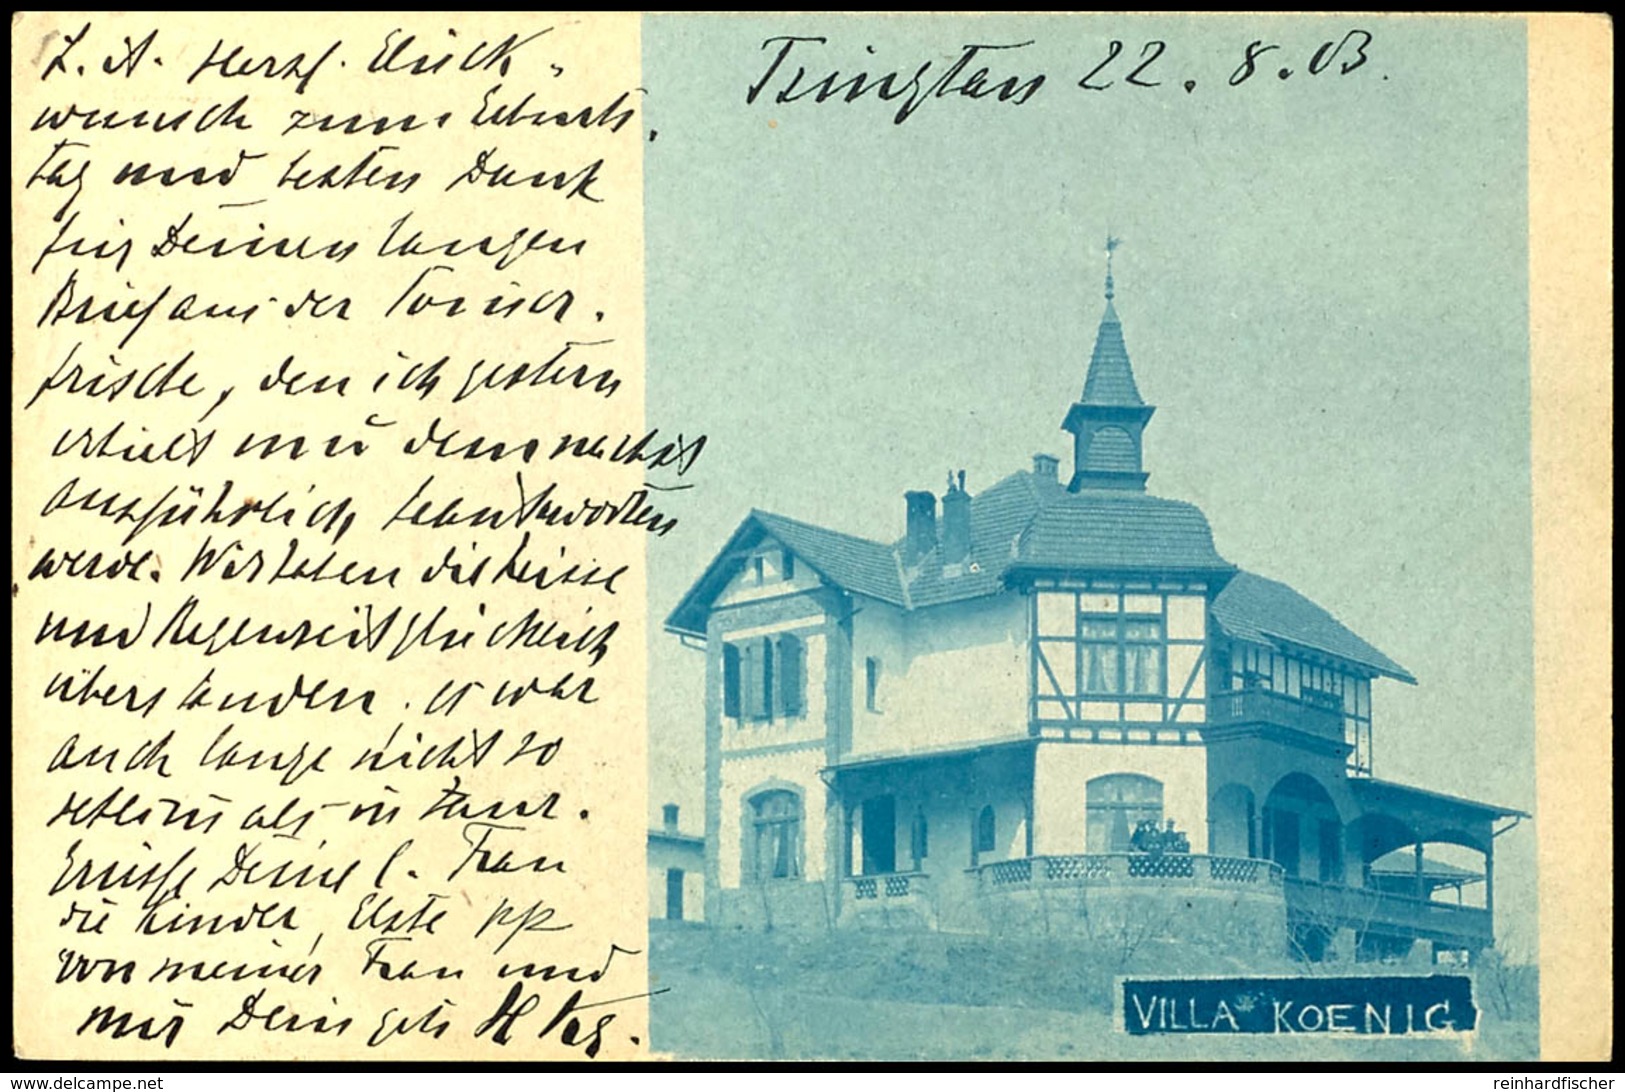 L. A. Herzl. Glück-
wunsch zum Geburts-
tag und besten Dank
für Deinen langen
Brief aus der Sommer-
frische, den ich gestern
erhielt und demnächst
ausführlich beantworten
werde. Wir haben die heisse
und Regenzeit glücklich
überstanden, es war
auch lange nicht so
schlimm als in
Grüsse Deine l. Frau
die Kinder, pp
von meiner Frau und
mir Dein
Tsingtau 22.8.03.
VILLA KOENIG
www.delcampe.net
reinhardfischer